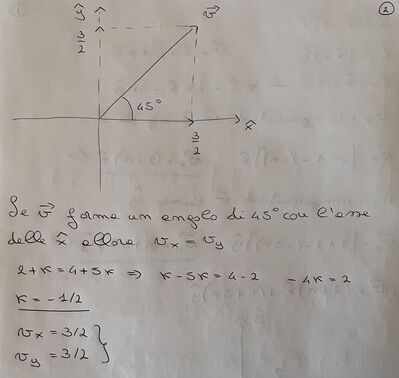 2
ŷ
v⃗
3/2
45°
x̂
3/2
Se v⃗ forma un angolo di 45° con l'asse
delle x̂ allora vx = vy
2+k=4+5k ⇒ k-5k=4-2 -4k=2
k=-1/2
vx = 3/2 }
vy = 3/2